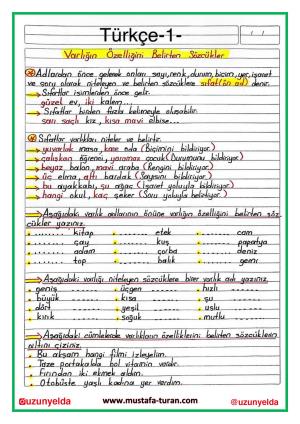 Türkçe-1-
Varlığın Özelliğini Belirten Sözcükler
Adlardan önce gelerek onları sayı, renk, durum, biçim, yer, işaret
ve soru olarak niteleyen ve belirten sözcüklere sıfat (ön ad) denir.
Sıfatlar isimlerden önce gelir.
güzel ev, iki kalem...
Sıfatlar birden fazla kelimeyle oluşabilir.
sarı saçlı kız, kısa mavi elbise...
Sıfatlar varlıkları niteler ve belirtir.
yuvarlak masa, kare oda (Biçimini bildiriyor.)
çalışkan öğrenci, yaramaz çocuk (Durumunu bildiriyor.)
beyaz balon, mavi araba (Rengini bildiriyor.)
üç elma, altı bardak (Sayısını bildiriyor.)
bu ayakkabı, şu ağaç (İşaret yoluyla bildiriyor.)
hangi okul, kaç şeker (Soru yoluyla belirtiyor.)
Aşağıdaki varlık adlarının önüne varlığın özelliğini belirten söz
cükler yazınız.
......... kitap ......... etek ......... cam
......... çay ......... kuş ......... papatya
......... adam ......... çorba ......... deniz
......... top ......... balık ......... gemi
Aşağıdaki varlığı niteleyen sözcüklere birer varlık adı yazınız.
geniş ......... üçgen ......... hızlı .........
büyük ......... kısa ......... şu .........
dört ......... yeşil ......... uslu .........
kırık ......... soğuk ......... mutlu .........
Aşağıdaki cümlelerde varlıkların özelliklerini belirten sözcüklerin
altını çiziniz.
Bu akşam hangi filmi izleyelim.
Taze portakalda bol vitamin vardır.
Fırından iki ekmek aldım.
Otobüste yaşlı kadına yer verdim.
@uzunyelda www.mustafa-turan.com @uzunyelda